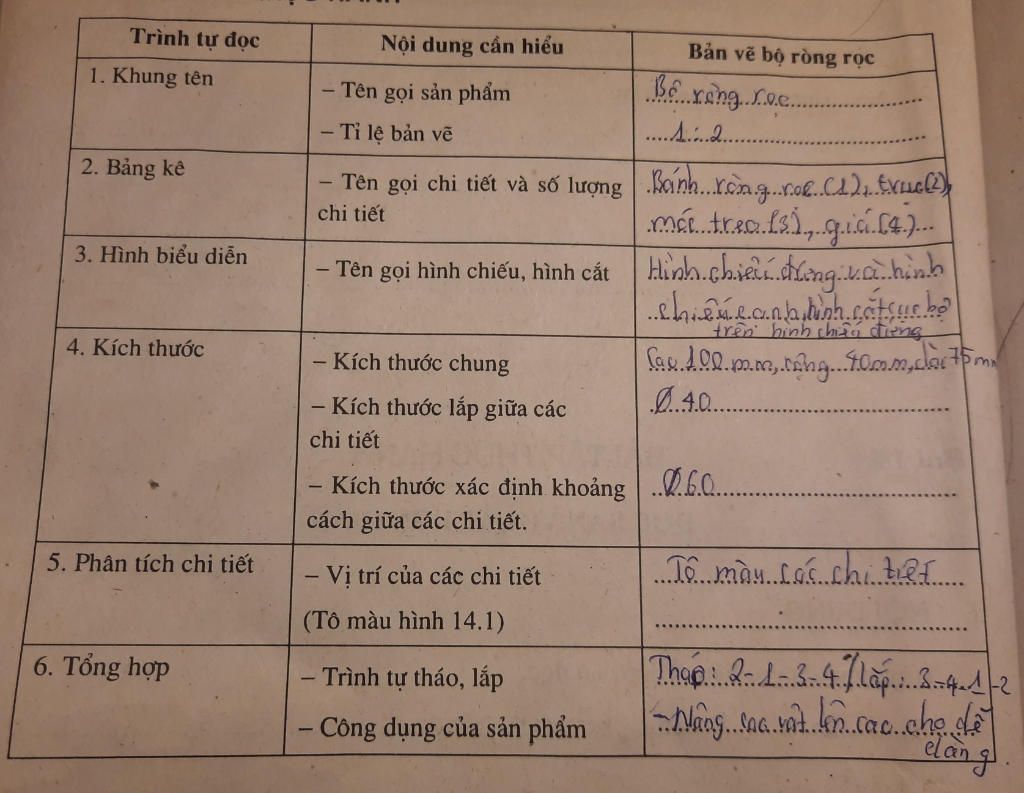 Trình tự đọc
Nội dung cần hiểu
Bản vẽ bộ ròng rọc
1. Khung tên
– Tên gọi sản phẩm
Bộ ròng rọc
– Tỉ lệ bản vẽ
1:2
2. Bảng kê
– Tên gọi chi tiết và số lượng
chi tiết
Bánh ròng rọc (1), trục(2),
móc treo (3), giá (4)
3. Hình biểu diễn
– Tên gọi hình chiếu, hình cắt
Hình chiếu đứng và hình
chiếu cạnh, hình cắt cục bộ
trên hình chiếu đứng
4. Kích thước
– Kích thước chung
Cao 100 mm, rộng 40mm, dài 75 mm
– Kích thước lắp giữa các
chi tiết
Ø 40
– Kích thước xác định khoảng
cách giữa các chi tiết.
Ø60
5. Phân tích chi tiết
– Vị trí của các chi tiết
(Tô màu hình 14.1)
Tô màu các chi tiết
6. Tổng hợp
– Trình tự tháo, lắp
Tháo: 2-1-3-4 / lắp: 3-4-1-2
– Công dụng của sản phẩm
– Nâng cao vật lên cao cho dễ
dàng